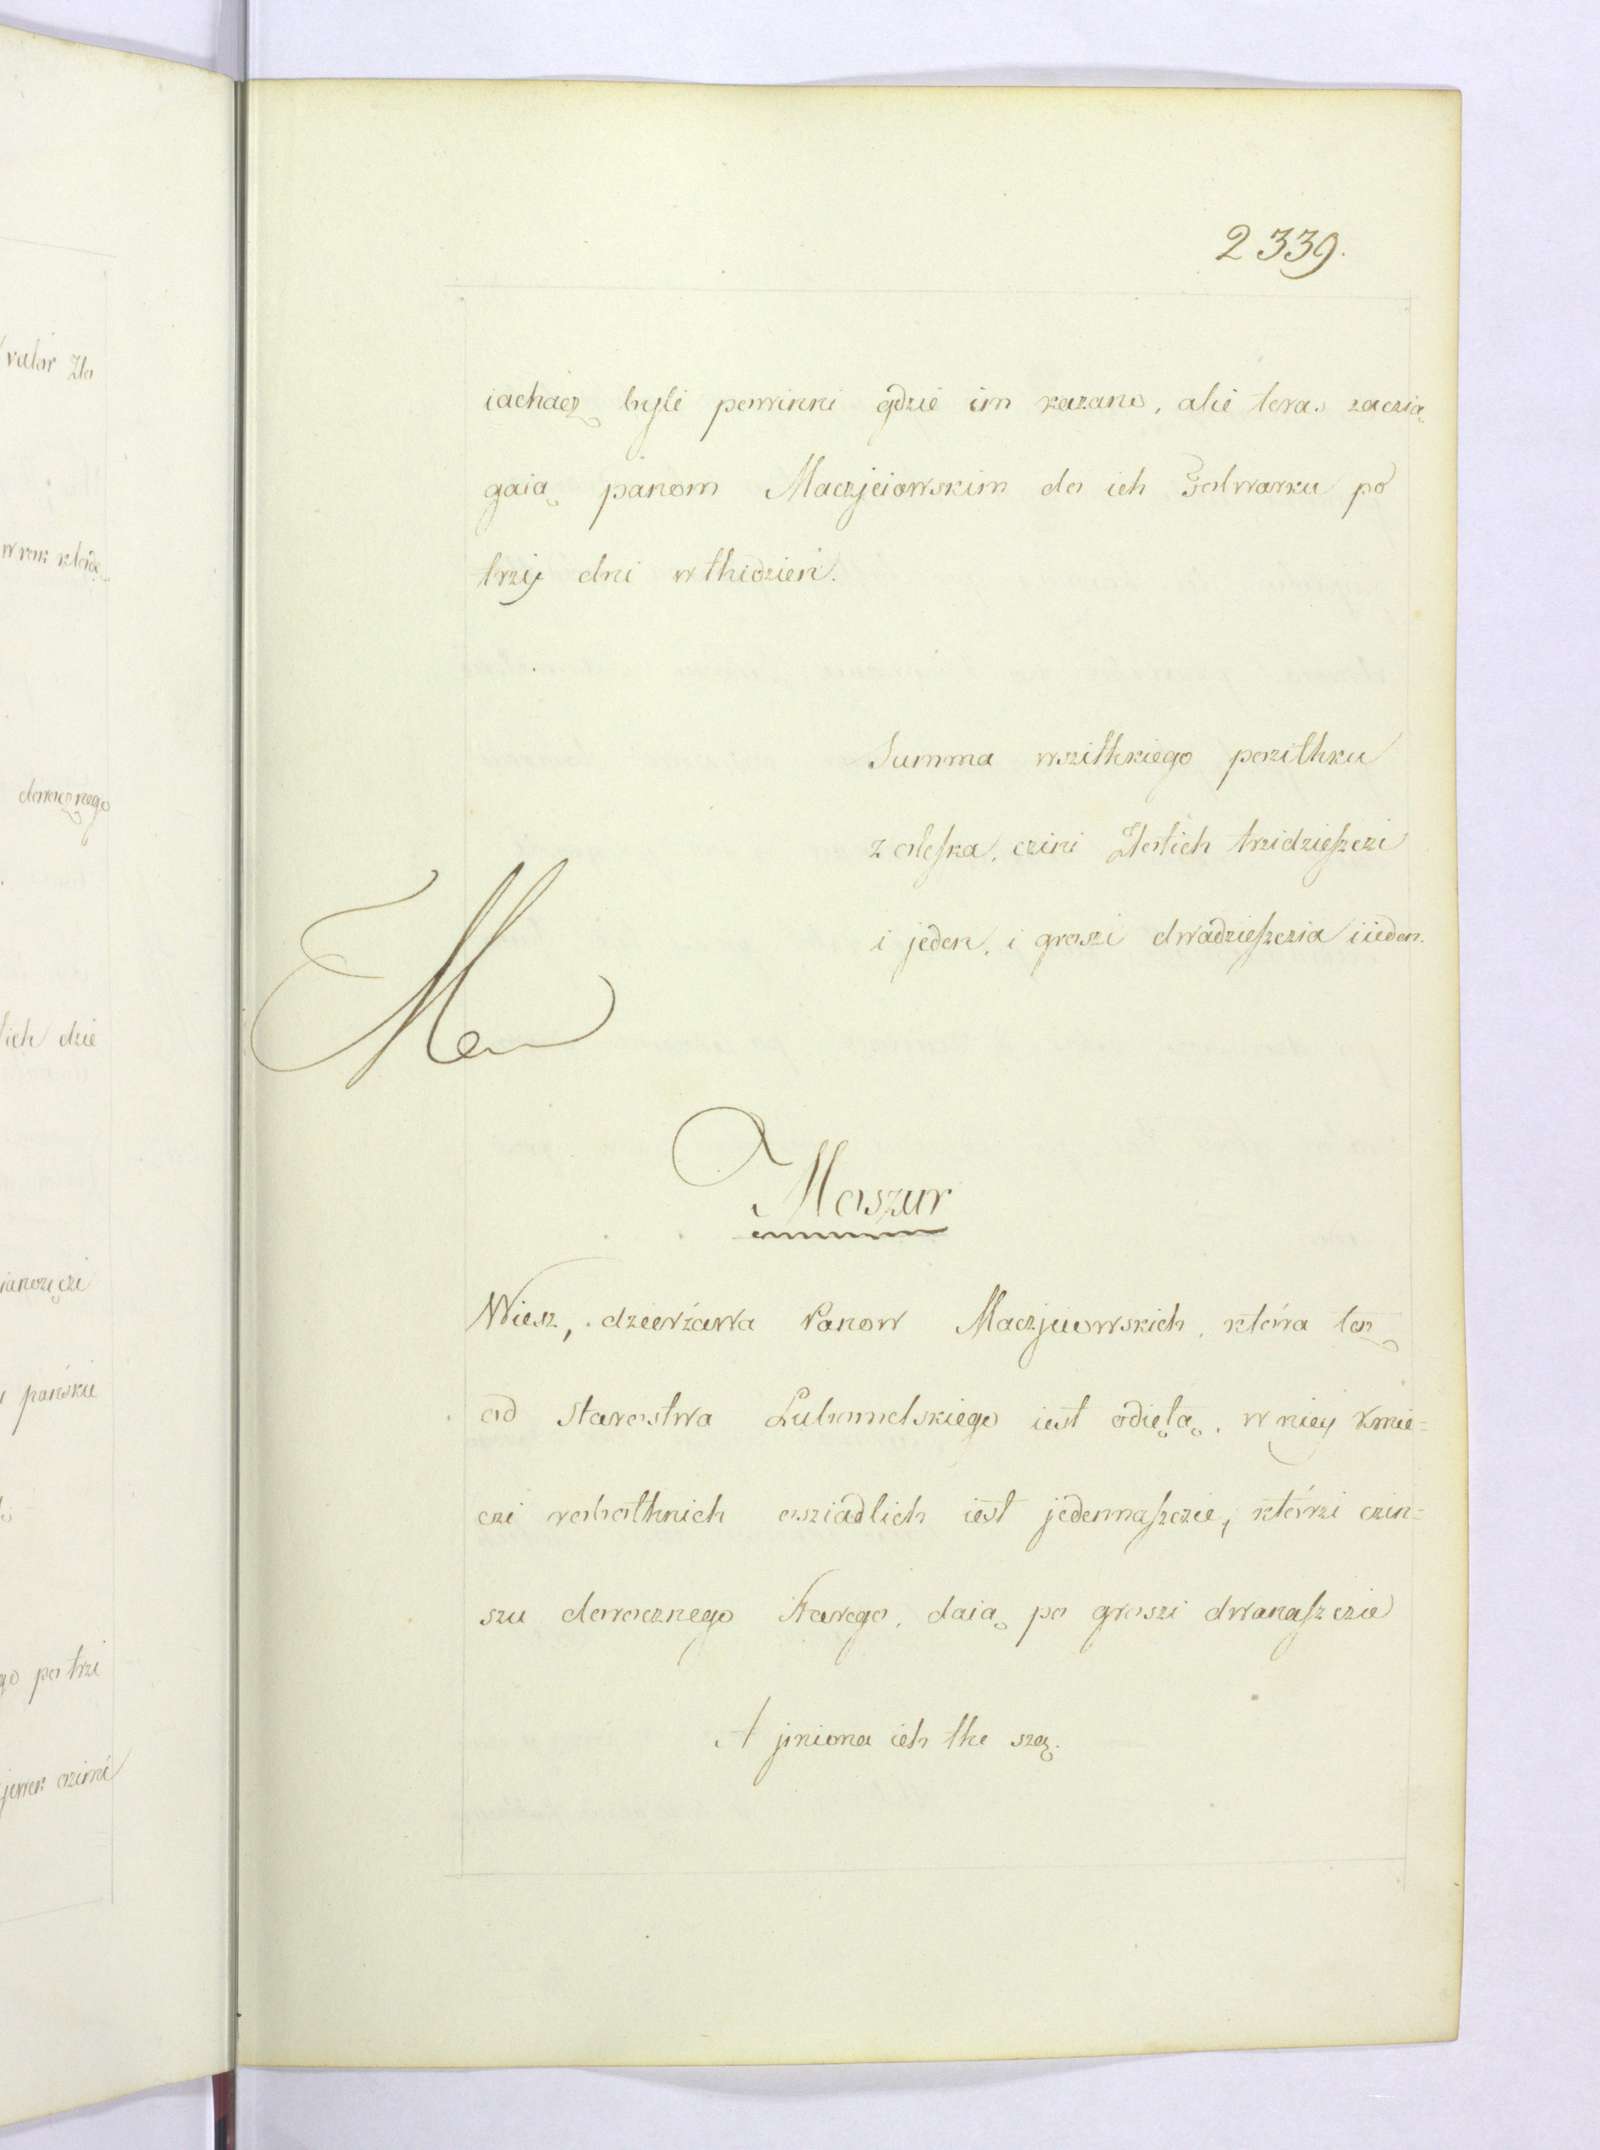 2339.
iachacz byli powinni gdzie im kazano, alie teras zaczia
gaią panom Maczjeiowskim do ich Folwarku po
trzÿ dni w thidzień.
Summa wszithkiego pozithku
z oleska, czini Złotich trzidzieszczi
i jeden, i groszi dwadzieszczia iieden.
Moszur
Wiesz, dzierżawa Panow Maczjeiowskich, która tez
od Starostwa Lubomelskiego iest odiętą, w niey Kmie=
czi robothnich osziadlich iest jedennaszczie, którzi czin=
szu dorocznego Starego, daią po groszi dwanaszczie
A jmiona ich the szą.
valor Zło
dorocznego
tich dzie
pańskie
go po trzi